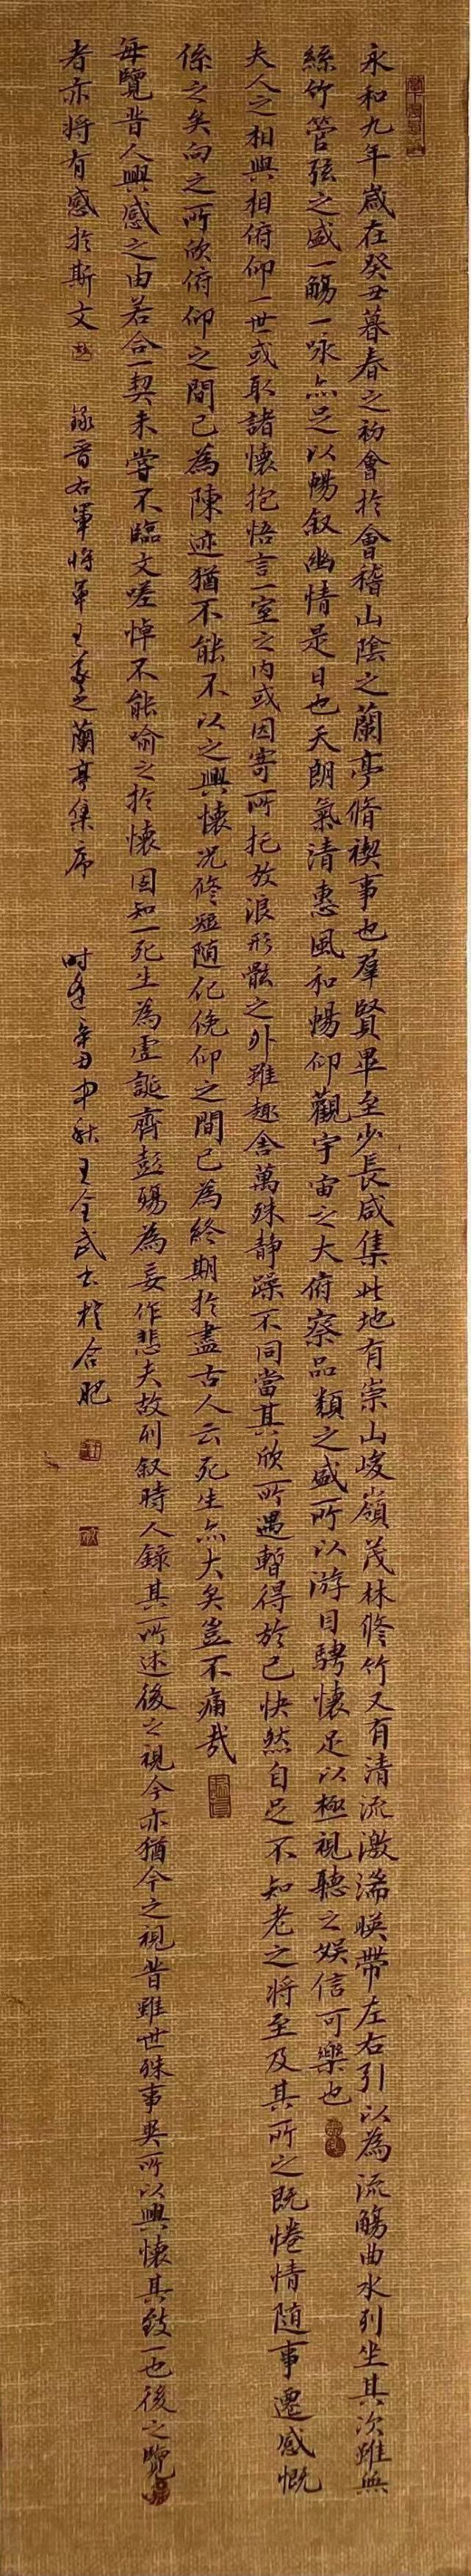 永和九年歲在癸丑暮春之初會於會稽山陰之蘭亭脩禊事也羣賢畢至少長咸集此地有崇山峻嶺茂林修竹又有清流激湍暎帶左右引以為流觴曲水列坐其次雖無
絲竹管弦之盛一觴一咏亦足以暢叙幽情是日也天朗氣清惠風和暢仰觀宇宙之大俯察品類之盛所以游目騁懷足以極視聽之娛信可樂也
夫人之相與俯仰一世或取諸懷抱悟言一室之内或因寄所托放浪形骸之外雖趣舍萬殊静躁不同當其欣所遇暫得於己快然自足不知老之将至及其所之既惓情随事遷感慨
係之矣向之所欣俯仰之間已為陳迹猶不能不以之興懷况修短随化俛仰之間已為終期於盡古人云死生亦大矣豈不痛哉
每覽昔人興感之由若合一契未嘗不臨文嗟悼不能喻之於懷固知一死生為虚誕齊彭殤為妄作悲夫故列叙時人錄其所述後之視今亦猶今之視昔雖世殊事異所以興懷其致一也後之覽
者亦将有感於斯文 錄晋右軍将軍王羲之蘭亭集序 时逢辛丑中秋王全武书於合肥